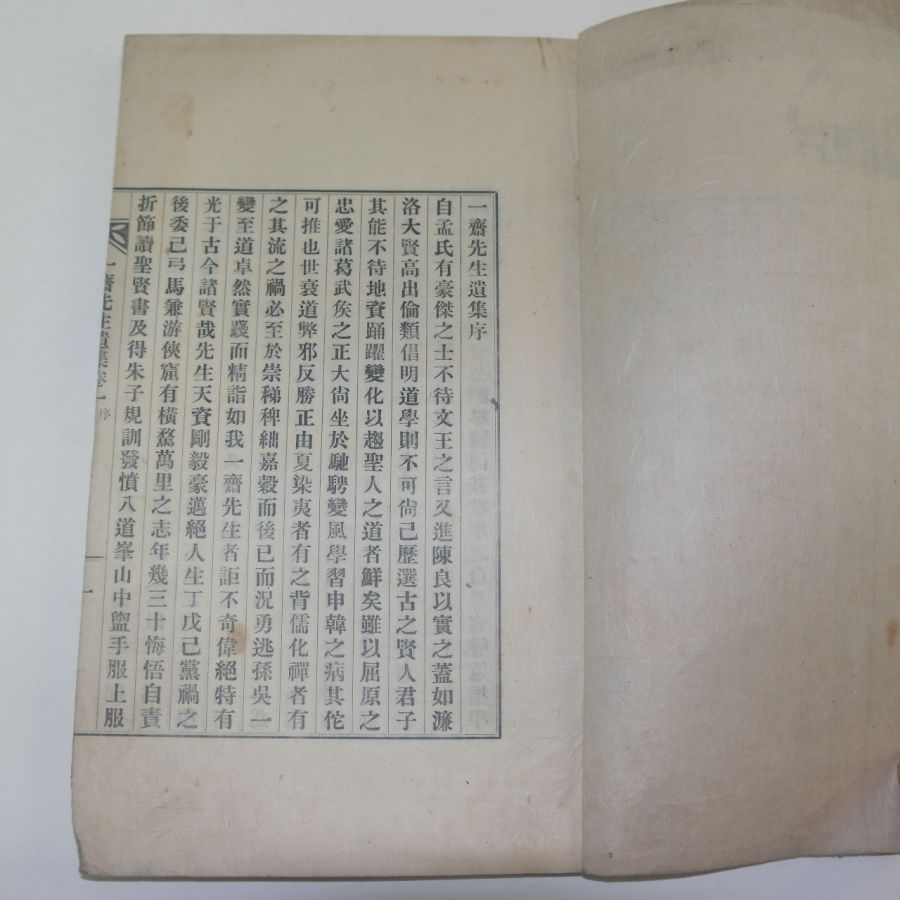 一齋先生遺集序
自孟氏有豪傑之士不待文王之言又進陳良以實之蓋如濂
洛大賢高出倫類倡明道學則不可尙已歷選古之賢人君子
其能不待地資踊躍變化以趨聖人之道者鮮矣雖以屈原之
忠愛諸葛武矦之正大尙坐於馳騁變風學習申韓之病其佗
可推也世衰道弊邪反勝正由夏染夷者有之背儒化禪者有
之其流之禍必至於崇稊稗絀嘉穀而後已而況勇逃孫吳一
變至道卓然實踐而精詣如我一齋先生者詎不奇偉絕特有
光于古今諸賢哉先生天資剛毅豪邁絕人生丁戊己黨禍之
後委己弓馬兼游俠窟有橫騖萬里之志年幾三十悔悟自責
折節讀聖賢書及得朱子規訓發憤入道峯山中盥手服上服
一齋先生遺集卷一 序 一